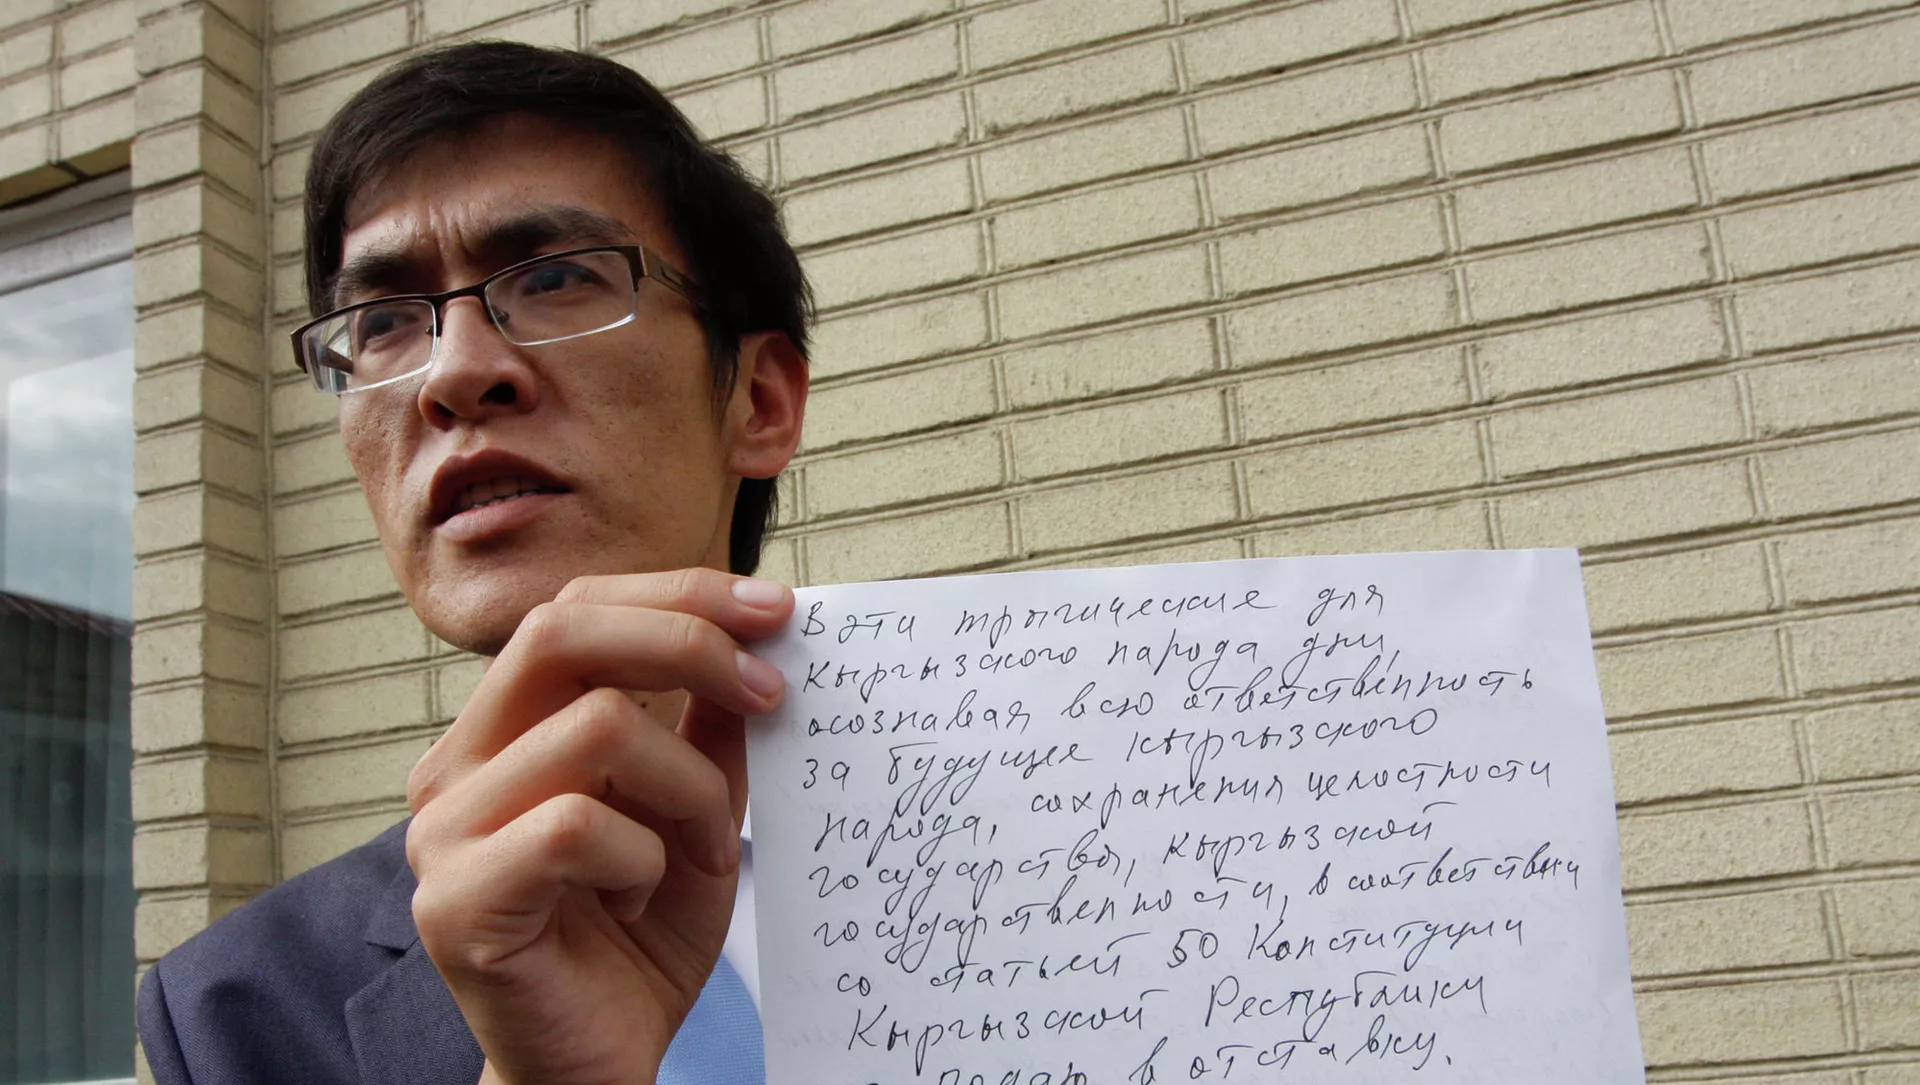 В эти трыгические для
Кыргызского народа дни,
осознавая всю ответственность
за будущее Кыргызского
народа, сохранения целостности
государства, Кыргызской
государственности, в соответствии
со статьей 50 Конституции
Кыргызской Республики
подаю в отставку.